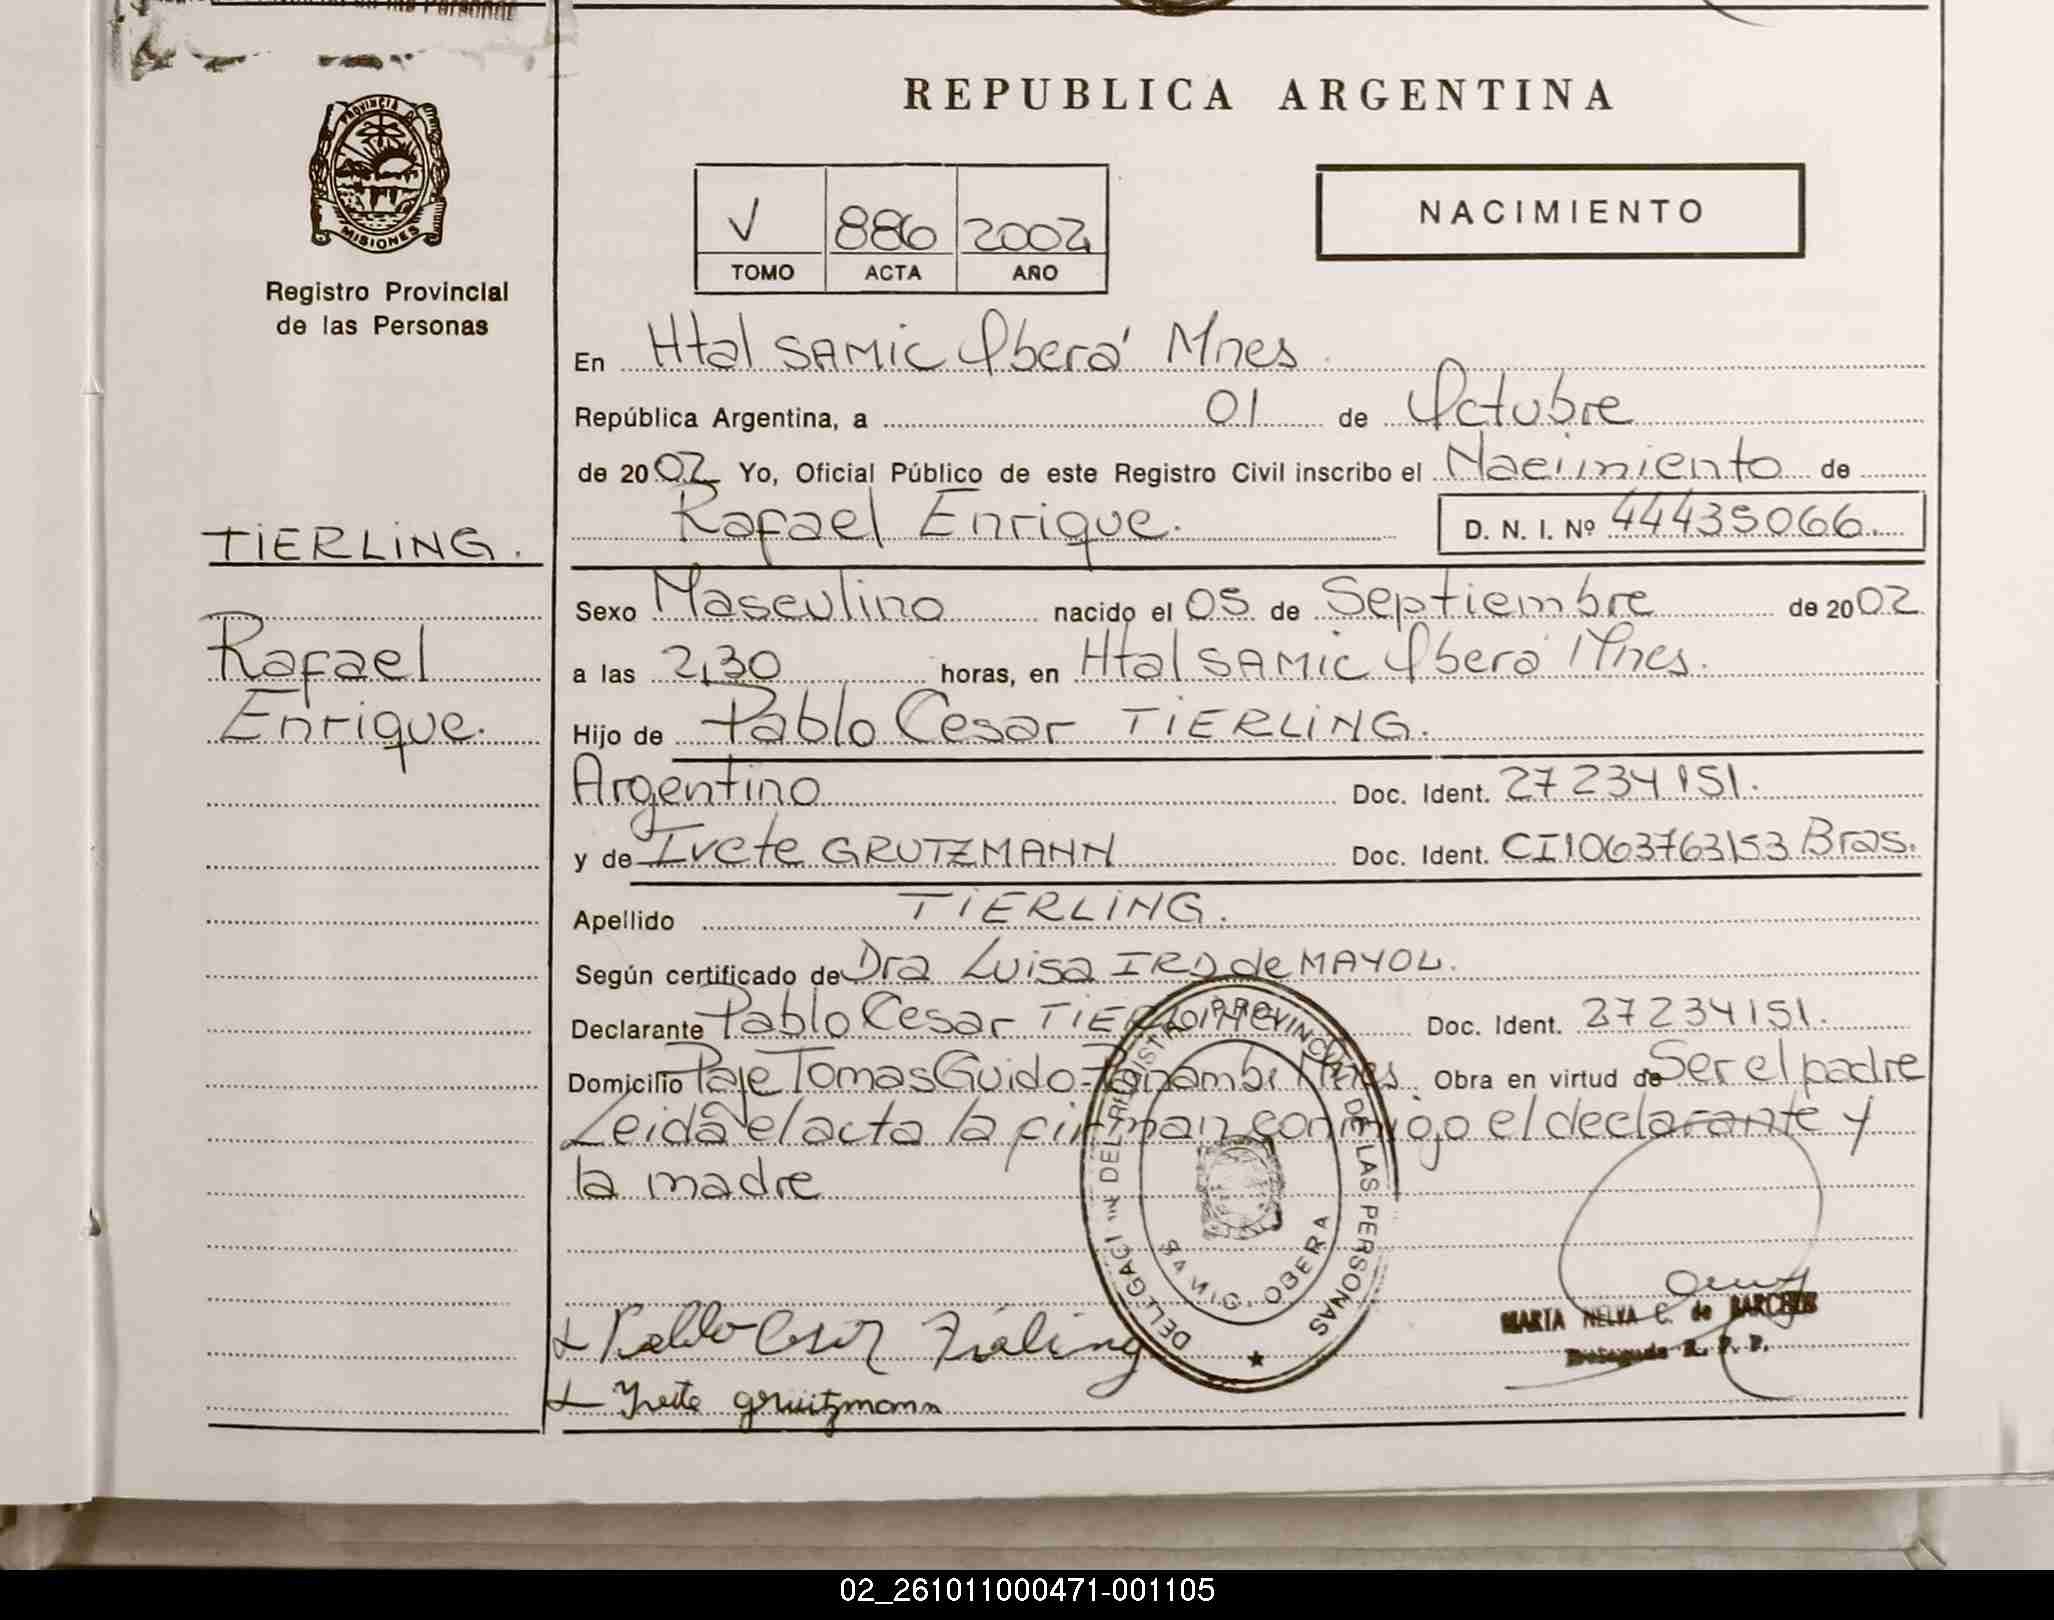 PROVINCIA DE
MISIONES
Registro Provincial
de las Personas
TIERLING.
Rafael
Enrique.
REPUBLICA ARGENTINA
V 886 2002
TOMO ACTA AÑO
NACIMIENTO
En Htal SAMIC Oberá Mnes.
República Argentina, a 01 de Octubre
de 2002 Yo, Oficial Público de este Registro Civil inscribo el Nacimiento de
Rafael Enrique. D. N. I. Nº 44435066.
Sexo Masculino nacido el 05 de Septiembre de 2002
a las 2,30 horas, en Htal SAMIC Oberá Mnes.
Hijo de Pablo Cesar TIERLING.
Argentino Doc. Ident. 27234151.
y de Ivete GRUTZMANN Doc. Ident. CI1063763153 Bras.
Apellido TIERLING.
Según certificado de Dra Luisa IRD de MAYOL.
Declarante Pablo Cesar TIERLING Doc. Ident. 27234151.
Domicilio Paje Tomas Guido-Panambi Mnes Obra en virtud de Ser el padre
Leida el acta la firman conmigo el declarante y
la madre
DELEGACION DEL REGISTRO PROVINCIAL DE LAS PERSONAS
SAMIC. OBERA
Pablo Cesar Tierling
Ivete grützmann
MARTA NELVA C. de BARCELOS
Delegada R. P. P.
02_261011000471-001105